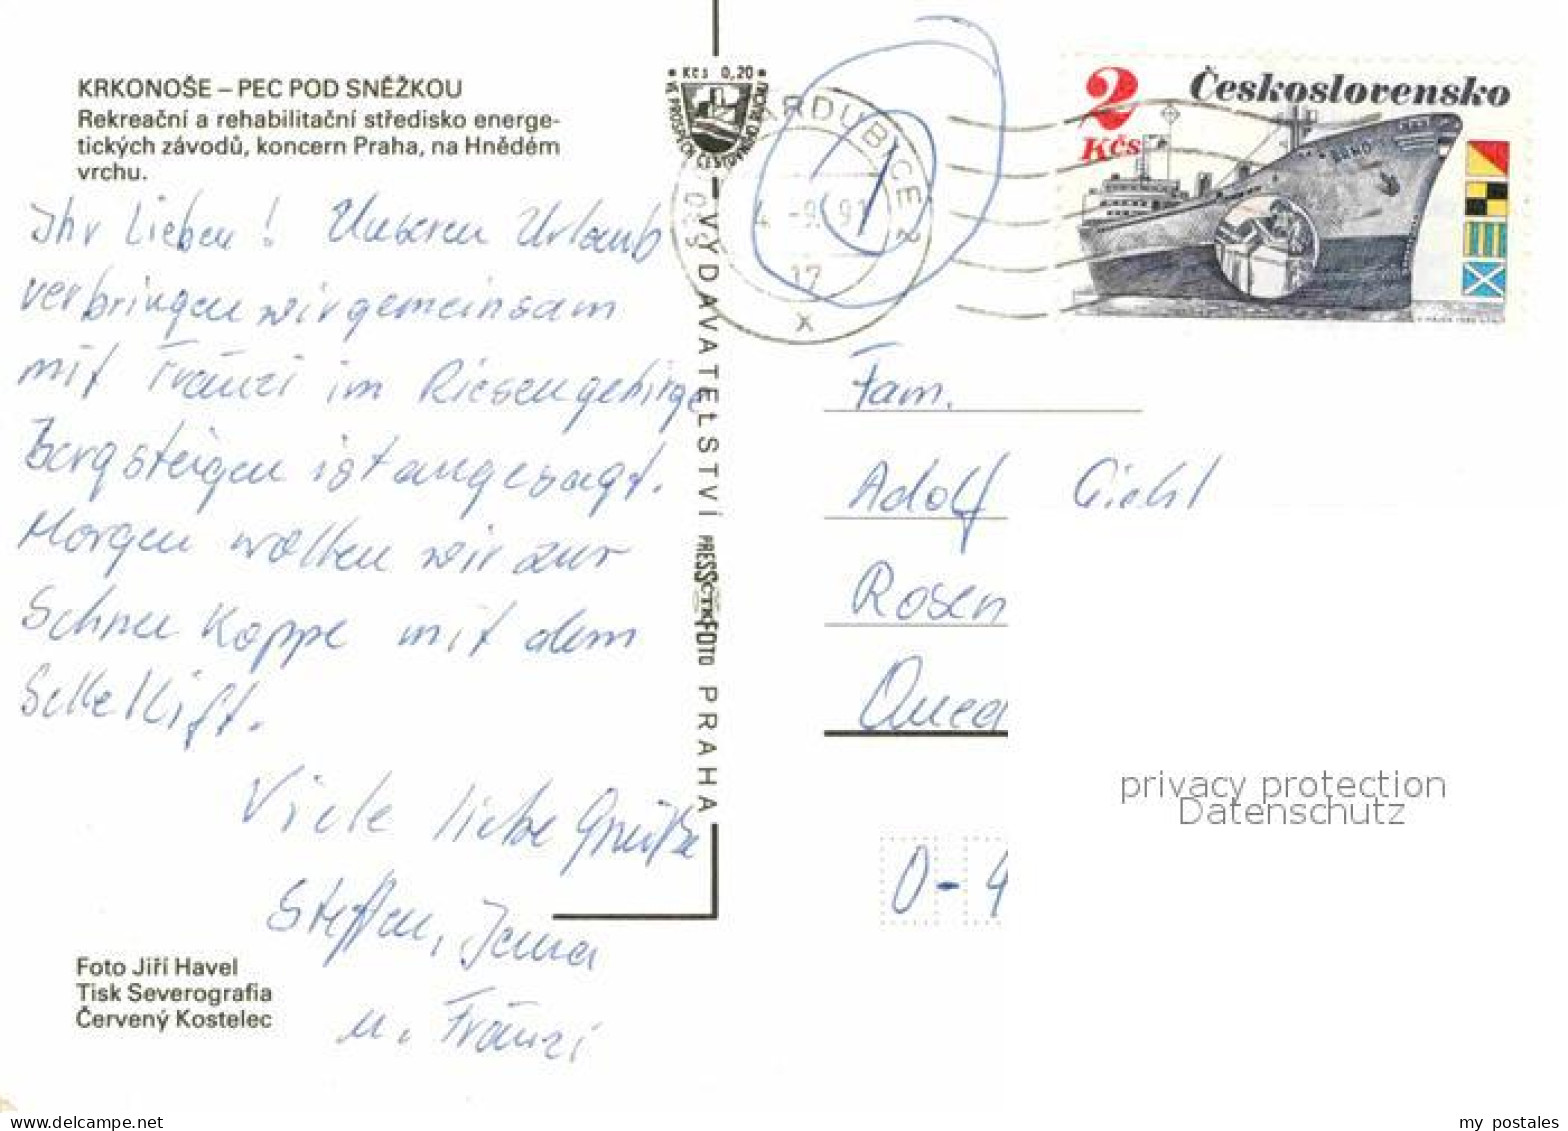 KRKONOŠE – PEC POD SNĚŽKOU
Rekreační a rehabilitační středisko energe-
tických závodů, koncern Praha, na Hnědém
vrchu.
Ihr Lieben! Unseren Urlaub
verbringen wir gemeinsam
mit Fränzi im Riesengebirge
Bergsteigen ist angesagt.
Morgen wollen wir zur
Schnee Koppe mit dem
Sessellift.
Viele liebe Grüße
Steffen, Jana
u. Fränzi
Foto Jiří Havel
Tisk Severografia
Červený Kostelec
Kčs 0,20
VYDAVATELSTVÍ PRESSFOTO PRAHA
ČTK
PARDUBICE 2
4. -9. 91
17
x
2
Kčs
Československo
BRNO
Fam.
Adolf
Rosen
Qued
0-4
privacy protection
Datenschutz
my postales